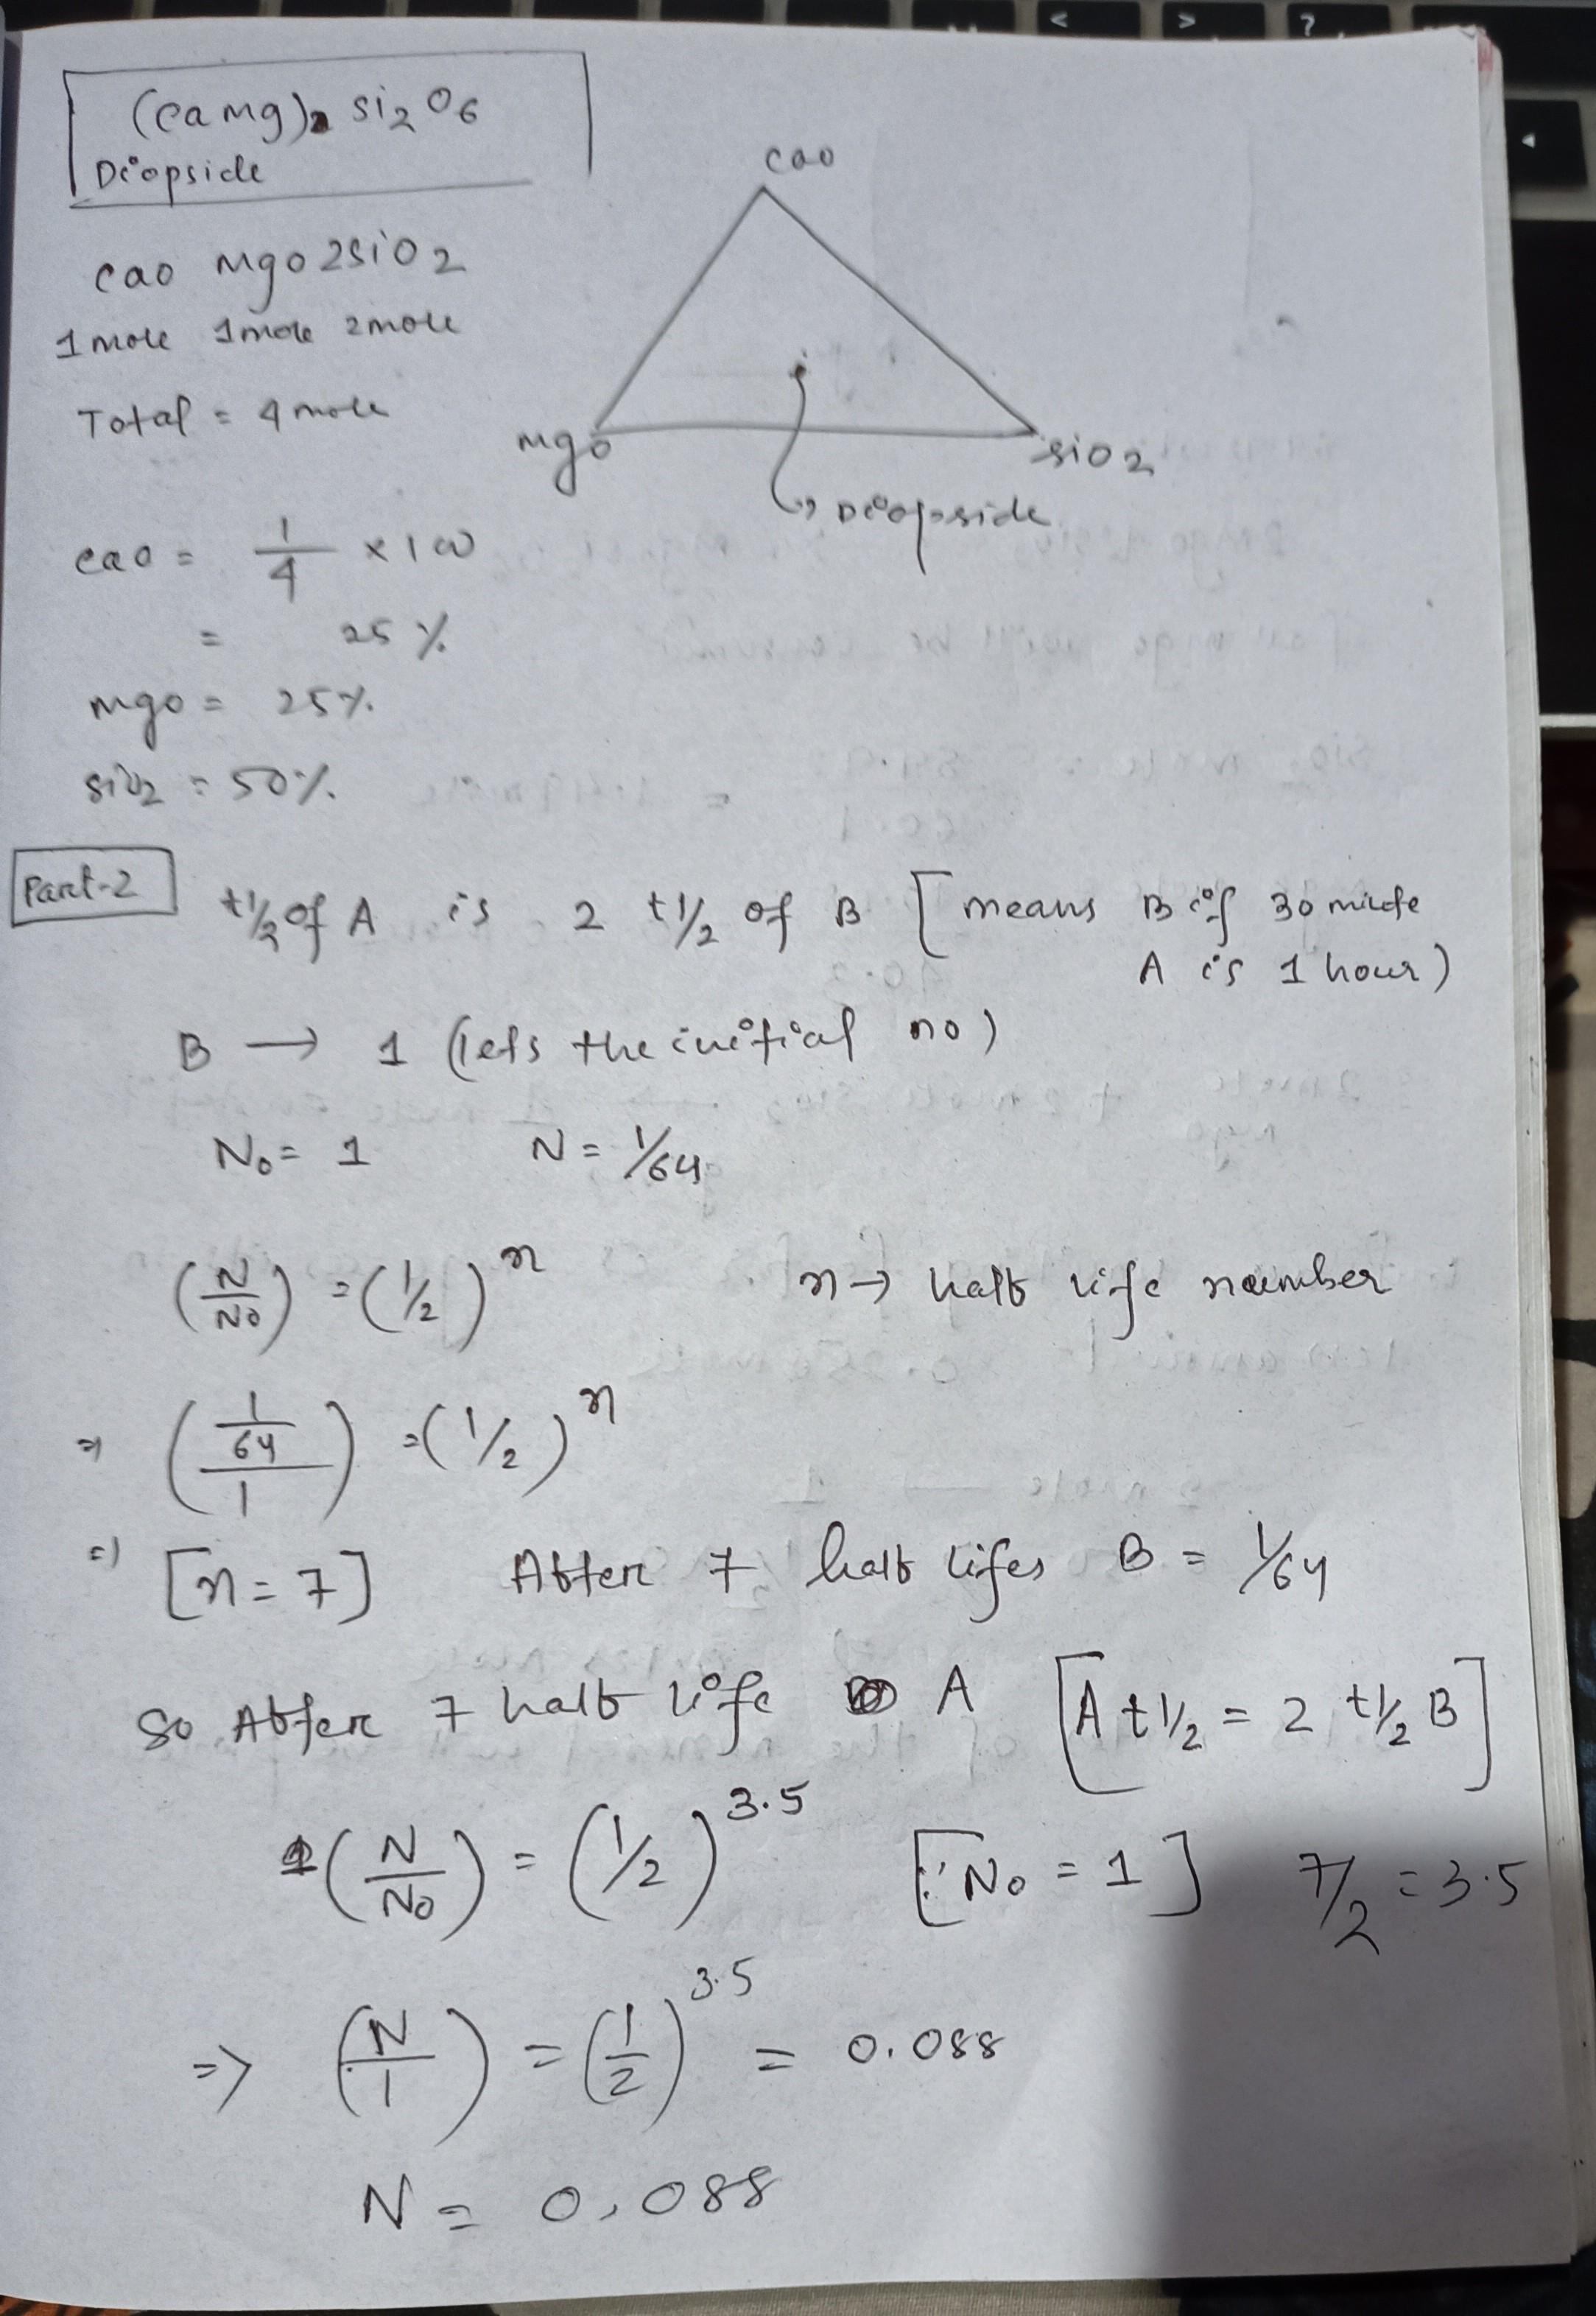 (ca mg)2 si2 O6
Diopside
cao
cao mgo 2siO2
1 mole 1 mole 2 mole
Total = 4 mole
mgo
siO2
Diopside
cao = 1/4 × 100
= 25 %
mgo = 25%.
siO2 = 50%.
Part-2
t1/2 of A is 2 t1/2 of B [means B if 30 minute
A is 1 hour)
B → 1 (lets the initial no)
No = 1 N = 1/64
(N/No) = (1/2)^n n → half life number
⇒ ((1/64)/1) = (1/2)^n
⇒ [n = 7] After 7 half lifes B = 1/64
So After 7 half life A [A t1/2 = 2 t1/2 B]
(N/No) = (1/2)^3.5 [∵ No = 1] 7/2 = 3.5
⇒ (N/1) = (1/2)^3.5 = 0.088
N = 0.088